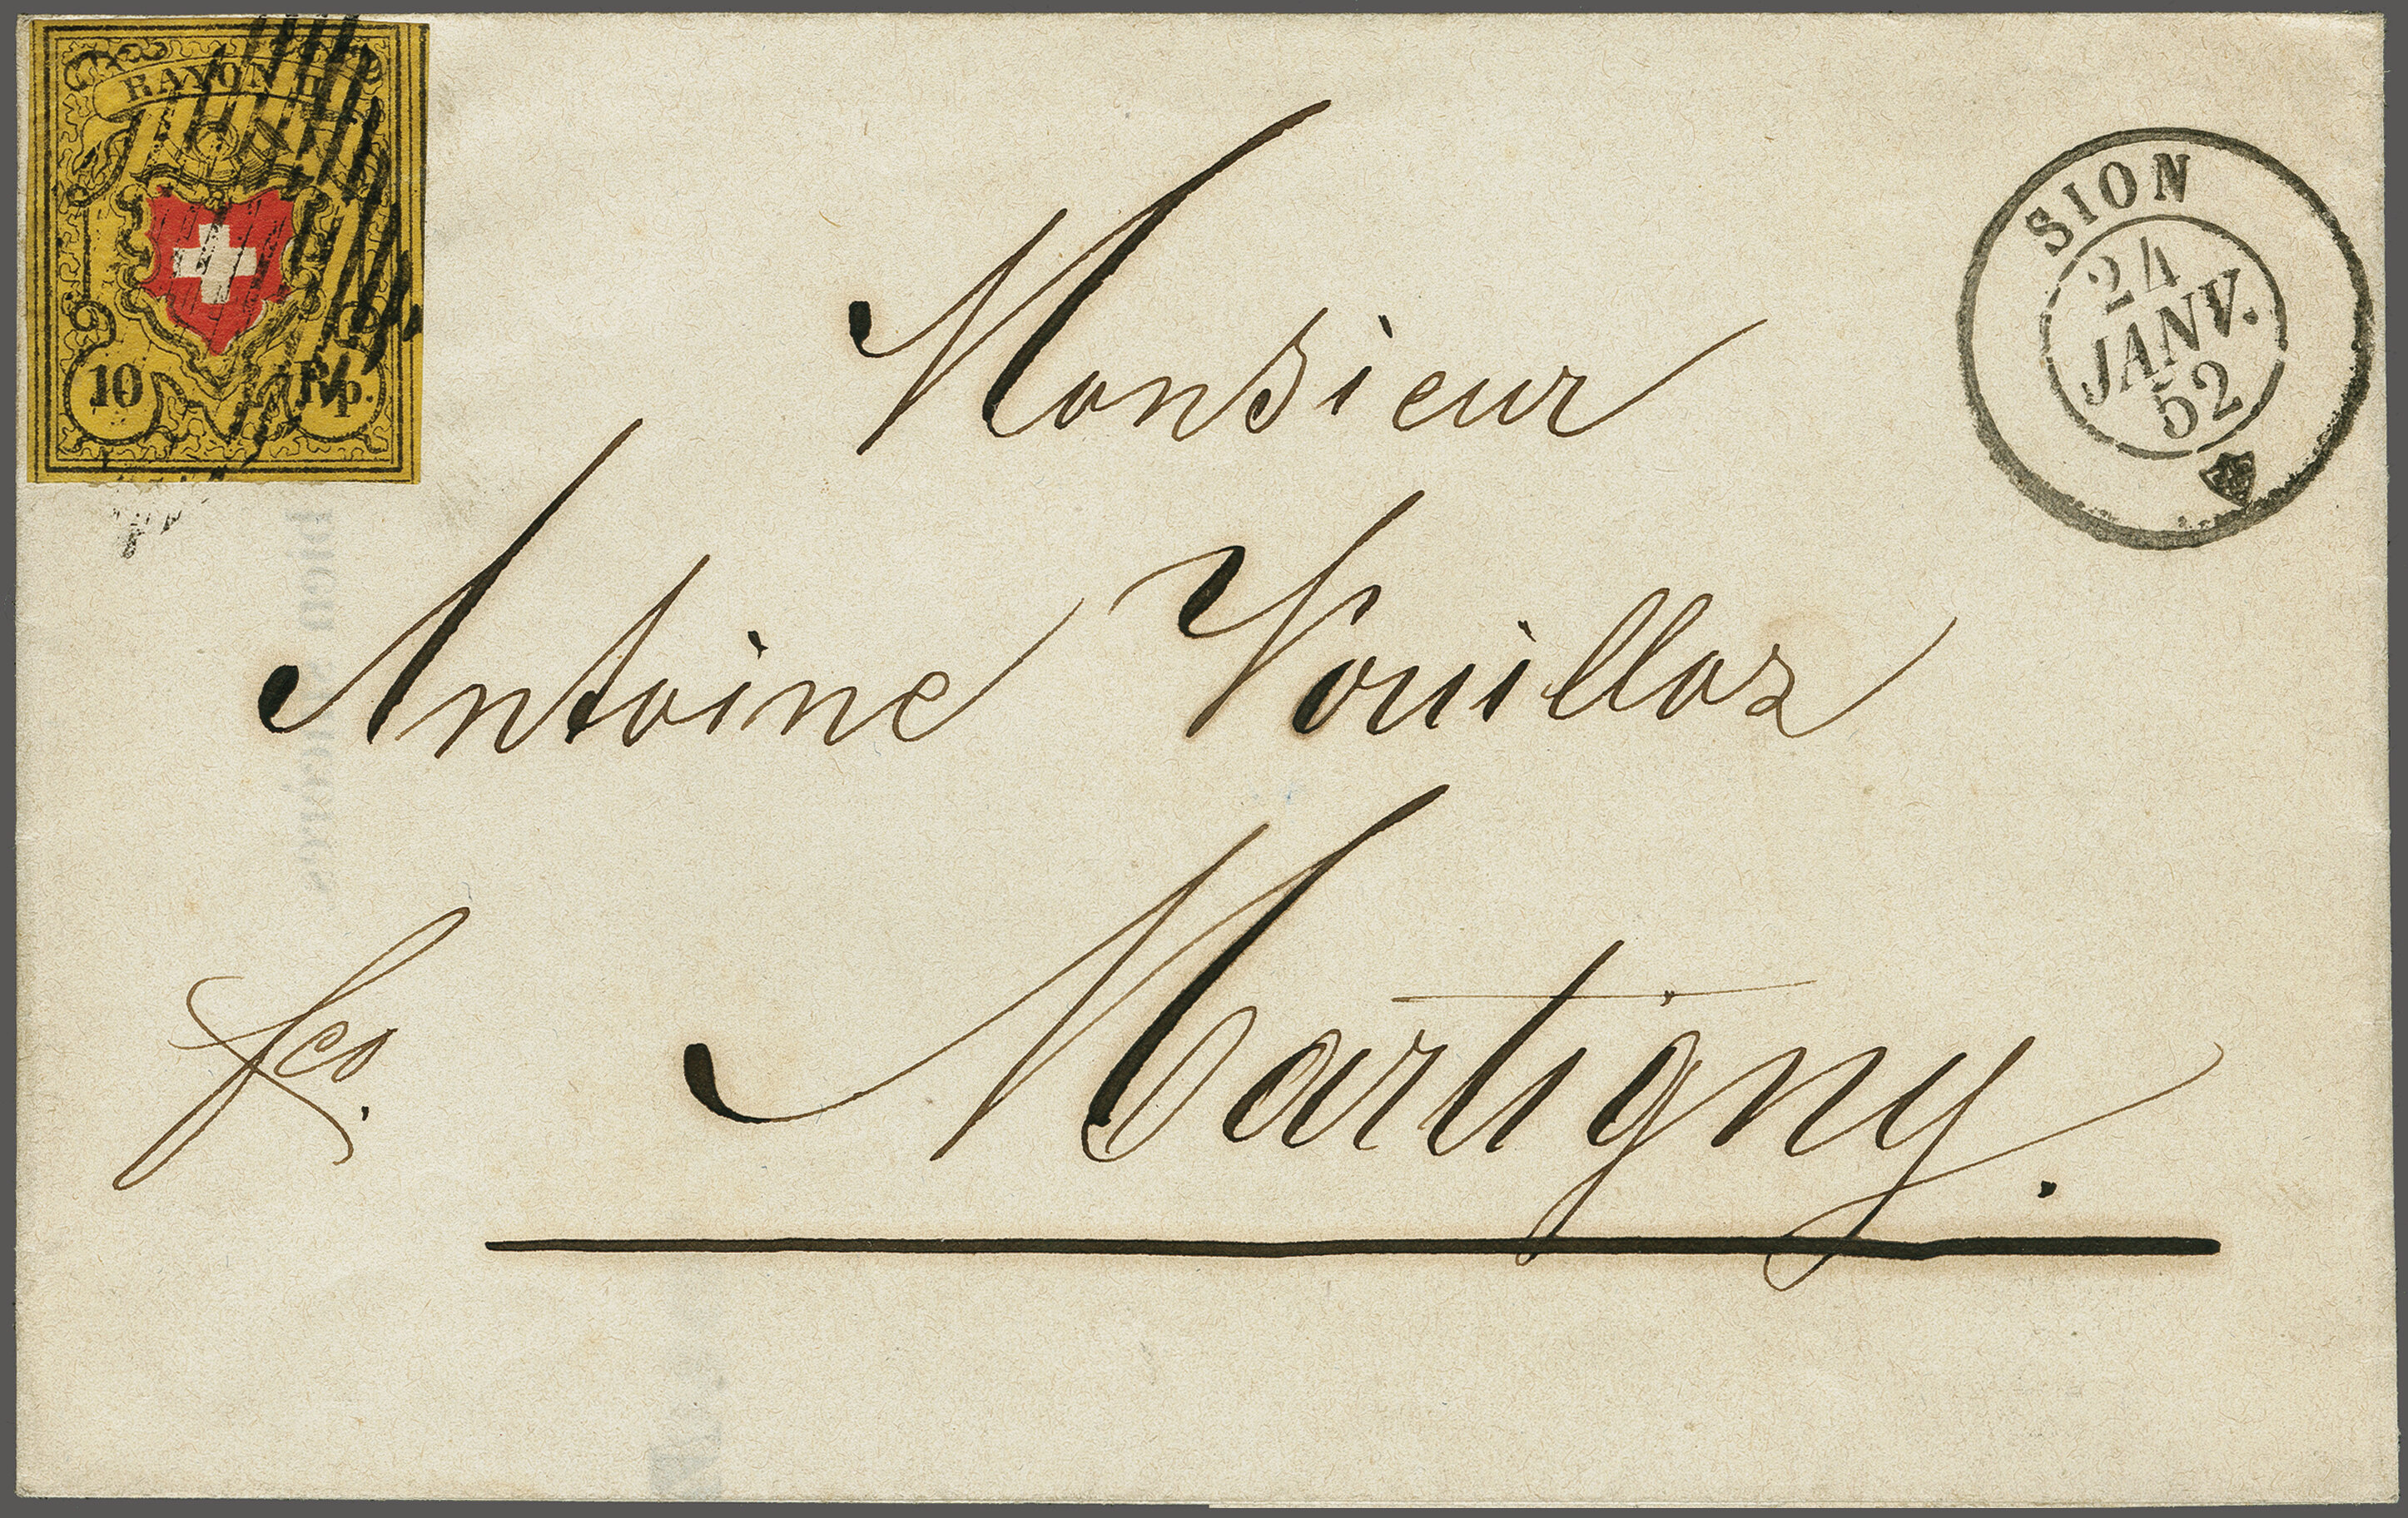 RAYON II
10 Rp.
SION
24
JANV.
52
Monsieur
Antoine Vouilloz
fco.
Martigny.